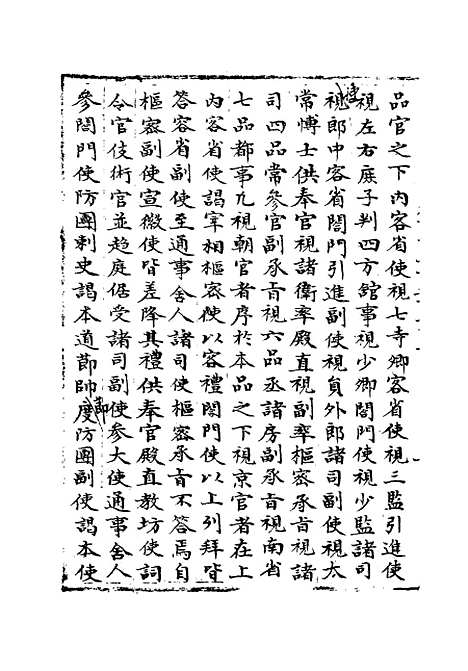 品官之下內客省使視七寺卿客省使視三監引進使
視左右庶子判四方館事視少卿閤門使視少監諸司
使視郎中客省閤門引進副使視員外郎諸司副使視太
常博士供奉官視諸衛率殿直視副率樞密承旨視諸
司四品常參官副承旨視六品丞諸房副承旨視南省
七品都事凡視朝官者序於本品之下視京官者在上
內客省使謁宰相樞密使以客禮閤門使以上列拜皆
答客省副使至通事舍人諸司使樞密承旨不答焉自
樞密副使宣徽使皆差降其禮供奉官殿直教坊使詞
令官伎術官並趨庭倨受諸司副使參大使通事舍人
參閤門使防團刺史謁本道節帥節度防團副使謁本使